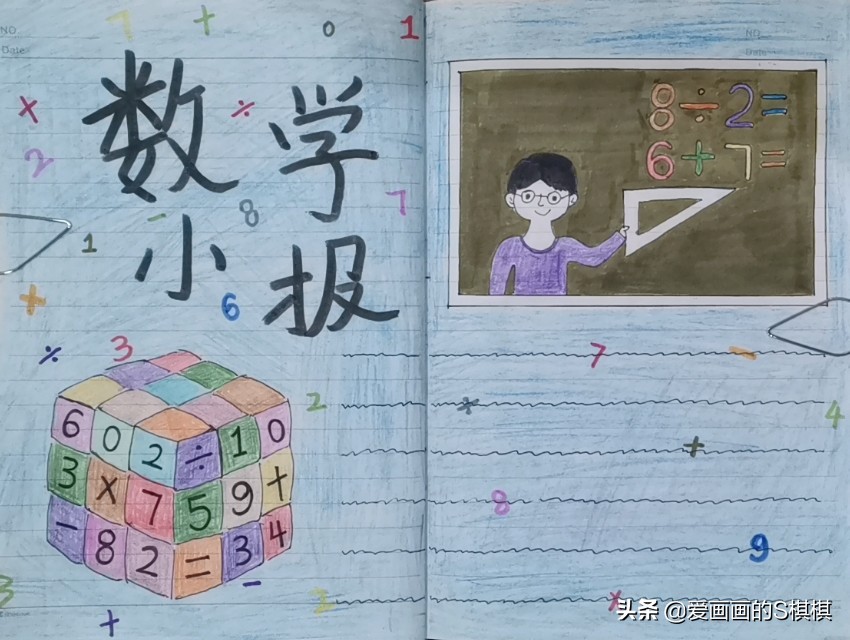 NO.
Date
7 + 0 1
数学
× ÷
2
7
- 8
1
小报
+ 6
÷ 3
6 0 2 ÷ 1 0
3 × 7 5 9 +
- 8 2 = 3 4
-
3
+
NO.
Date
8÷2=
6+7=
7 -
2 × 4
+
8
9
3 ×
头条 @爱画画的S棋棋